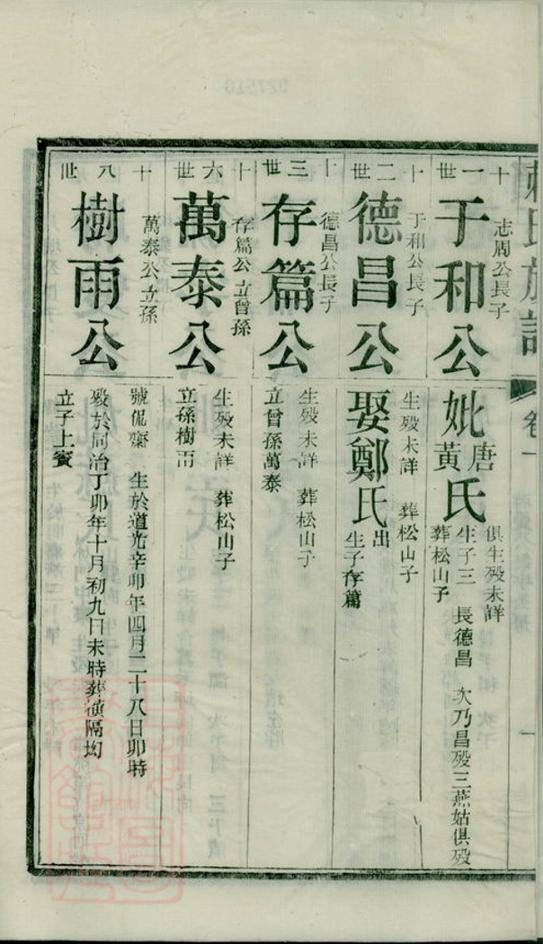 氏族譜
卷一
十一世
于和公
志周公長子
妣唐黃氏
俱生殁未詳
生子三 長德昌 次乃昌殁三燕姑俱殁
葬松山子
十二世
德昌公
于和公長子
生殁未詳 葬松山子
娶鄭氏
出
生子存篇
十三世
存篇公
德昌公長子
生殁未詳 葬松山子
立曾孫萬泰
十六世
萬泰公
存篇公立曾孫
生殁未詳 葬松山子
立孫樹雨
十八世
樹雨公
萬泰公立孫
號侃齋 生於道光辛卯年四月二十八日卯時
殁於同治丁卯年十月初九日未時葬橫隔㘭
立子上賓